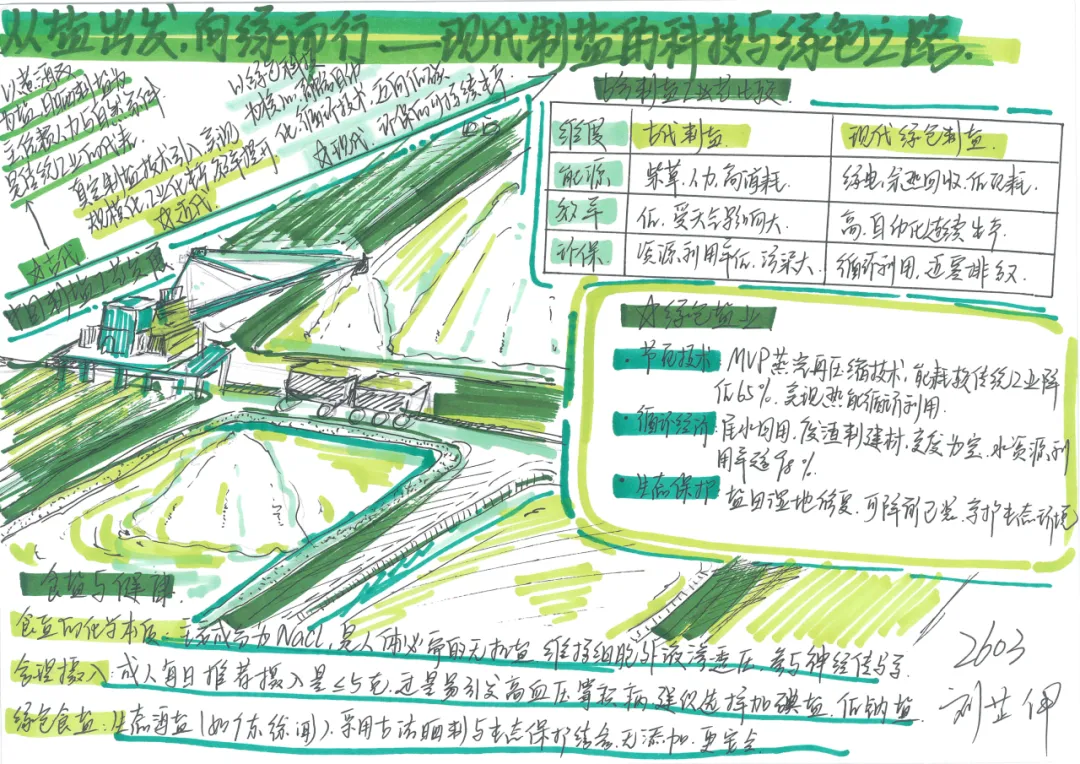 从盐出发,向绿而行——现代制盐的科技与绿色之路.
以煮海取
为盐、日晒制盐为
主依赖人力与自然条件
是传统工业的代表.
☆古代
真空制盐技术引入,实现
规模化,工业化转,效率提升
☆近代
以绿色科技
为核心,融高自动
化,循环技术,迈向低碳
环保的可持续生产
☆现代
中国制盐工业发展
古今制盐工业艺比较.
维度 古代制盐 现代绿色制盐.
能源 柴草.人力.高消耗. 绿电,余热回收.低碳耗.
效率 低、受天气影响大. 高,自动化连续生产.
环保. 资源利用率低,污染大. 循环利用,近零排放.
☆绿色盐业
·节能技术:MVP蒸汽再压缩技术,能耗较传统工业降
低65%.实现热能循环利用.
·循环经济:淮水回用,废渣制建材,变废为宝.水资源利
用率超98%.
·生态保护:盐田湿地修复.可降解包装.守护生态环境
食盐与健康.
食盐的化学本质:主要成分为NaCl,是人体必需的无机盐.维持细胞外液渗透压,参与神经传导.
合理摄入:成人每日推荐摄入量≤5克.过量易引发高血压等疾病.建议选择加碘盐.低钠盐.
绿色食盐:生态海盐(如广东徐闻).采用古法晒制与生态保护结合.无添加.更安全.
2603
刘芷伊